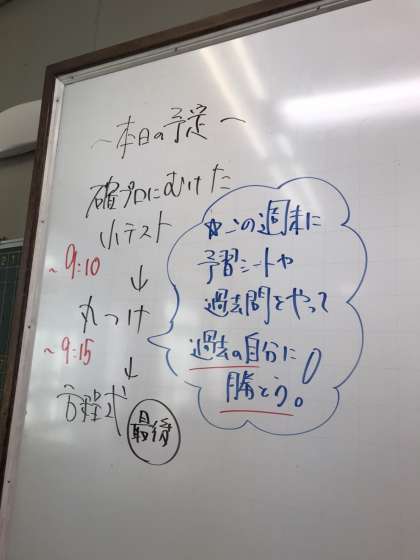 ～本日の予定～
確プロにむけた
小テスト
～9:10
↓
丸つけ
～9:15
↓
方程式
最後
☆この週末に
予習シートや
過去問をやって
過去の自分に
勝とう。!